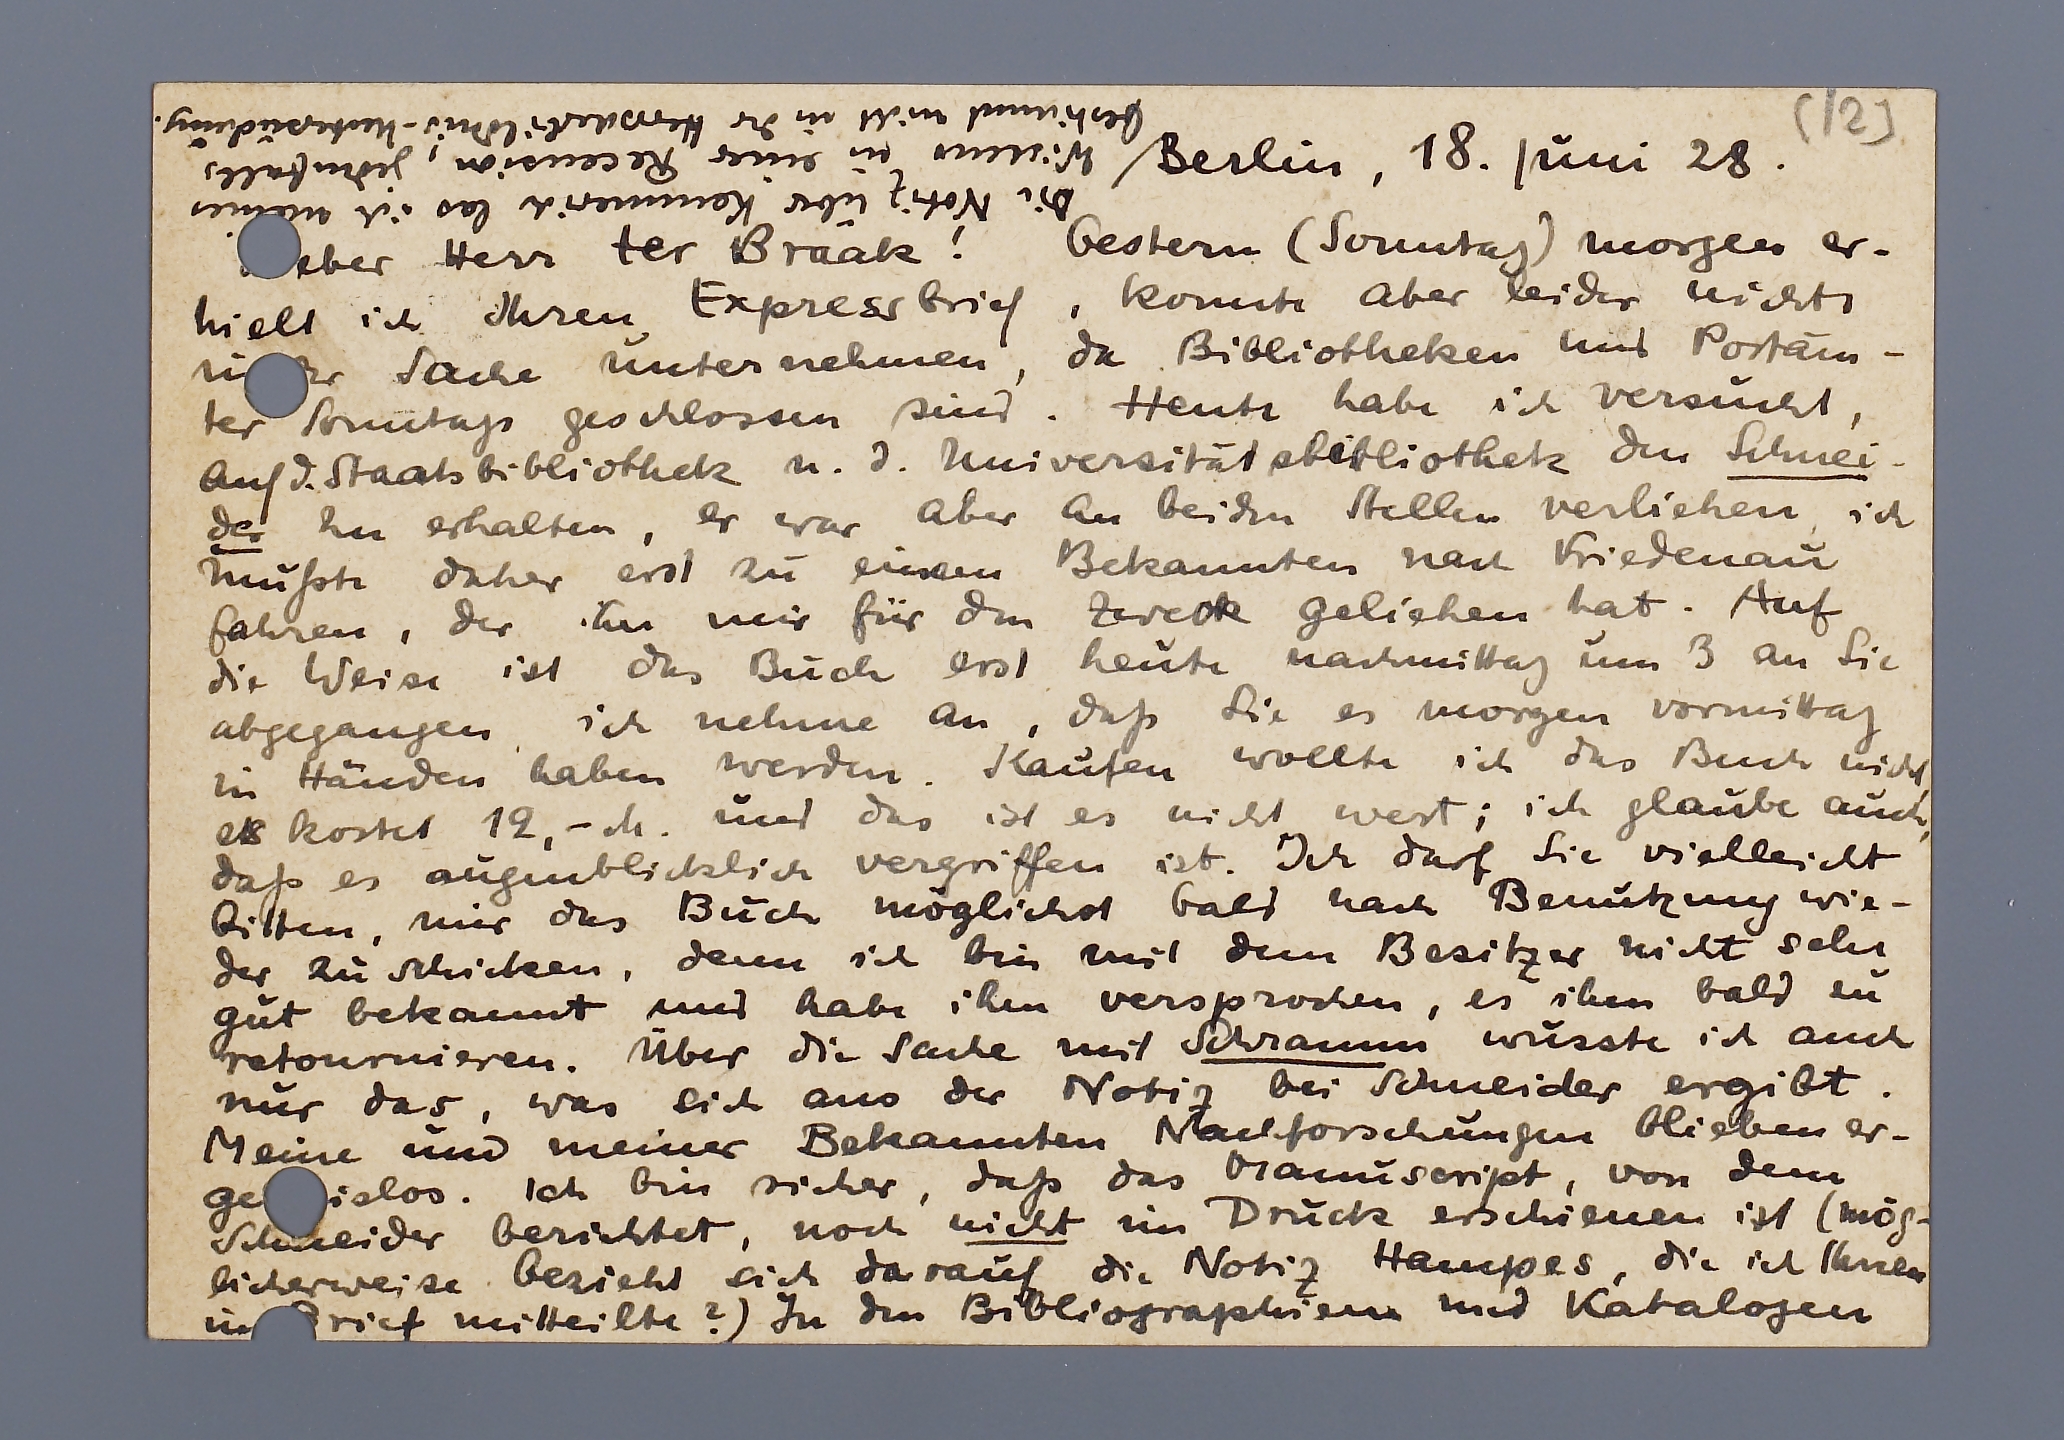 (12)
Berlin, 18. Juni 28.
Die Notiz über Kemmerich las ich meines
Wissens in einer Recension, jedenfalls
bestimmt nicht in der Herrscherbildnis-Untersuchung.
eber Herr ter Braak! Gestern (Sonntag) morgen er-
hielt ich Ihren Expressbrief, konnte aber leider nichts
in der Sache unternehmen, da Bibliotheken und Postäm-
ter Sonntags geschlossen sind. Heute habe ich versucht,
auf d. Staatsbibliothek u. d. Universitätsbibliothek den Schnei-
der zu erhalten, er war aber an beiden Stellen verliehen, ich
mußte daher erst zu einem Bekannten nach Friedenau
fahren, der ihn mir für den Zweck geliehen hat. Auf
die Weise ist das Buch erst heute nachmittag um 3 an Sie
abgegangen, ich nehme an, daß Sie es morgen vormittag
in Händen haben werden. Kaufen wollte ich das Buch nicht,
es kostet 12,- M. und das ist es nicht wert; ich glaube auch,
daß es augenblicklich vergriffen ist. Ich darf Sie vielleicht
bitten, mir das Buch möglichst bald nach Benutzung wie-
der zu schicken, denn ich bin mit dem Besitzer nicht sehr
gut bekannt und habe ihm versprochen, es ihm bald zu
retournieren. Über die Sache mit Schramm wusste ich auch
nur das, was sich aus der Notiz bei Schneider ergibt.
Meine und meiner Bekannten Nachforschungen blieben er-
ge islos. Ich bin sicher, daß das Manuscript, von dem
Schneider berichtet, noch nicht im Druck erschienen ist (mög-
licherweise bezieht sich darauf die Notiz Hampes, die ich Ihnen
im Brief mitteilte?) In den Bibliographien und Katalogen